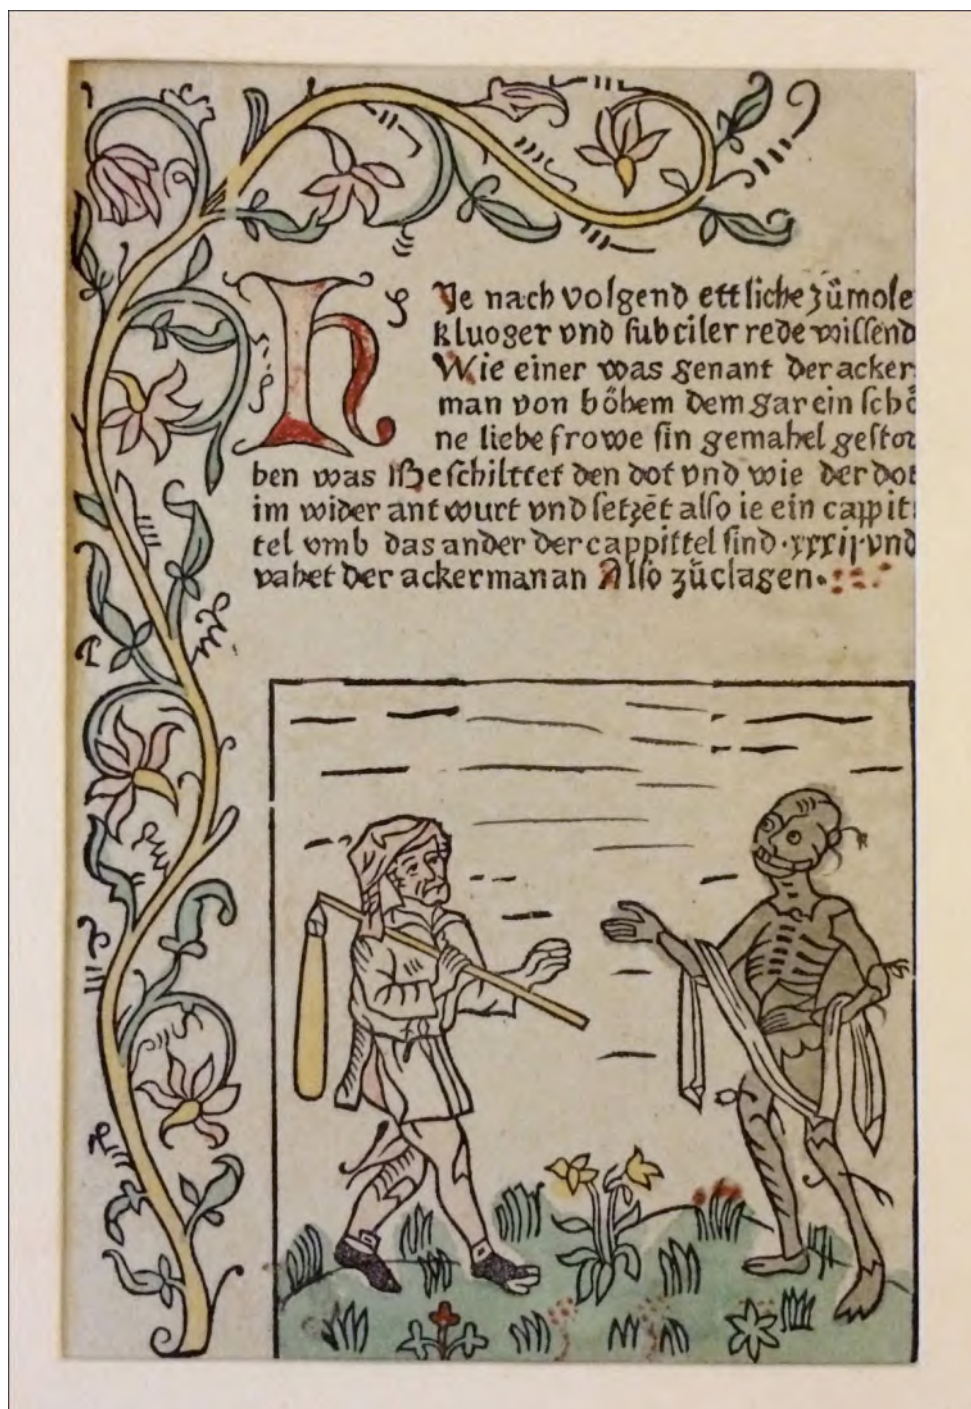 Hye nach volgend ettliche zů mole
kluoger vnd subtiler rede wissend
Wie einer was genant der acker
man von böhem dem gar ein schö
ne liebe frowe sin gemahel gestor
ben was Beschilttet den dot vnd wie der dot
im wider antwurt vnd setzēt also ie ein cappit
tel vmb das ander der cappittel sind ·xxxij· vnd
vahet der ackerman an Also zů clagen·